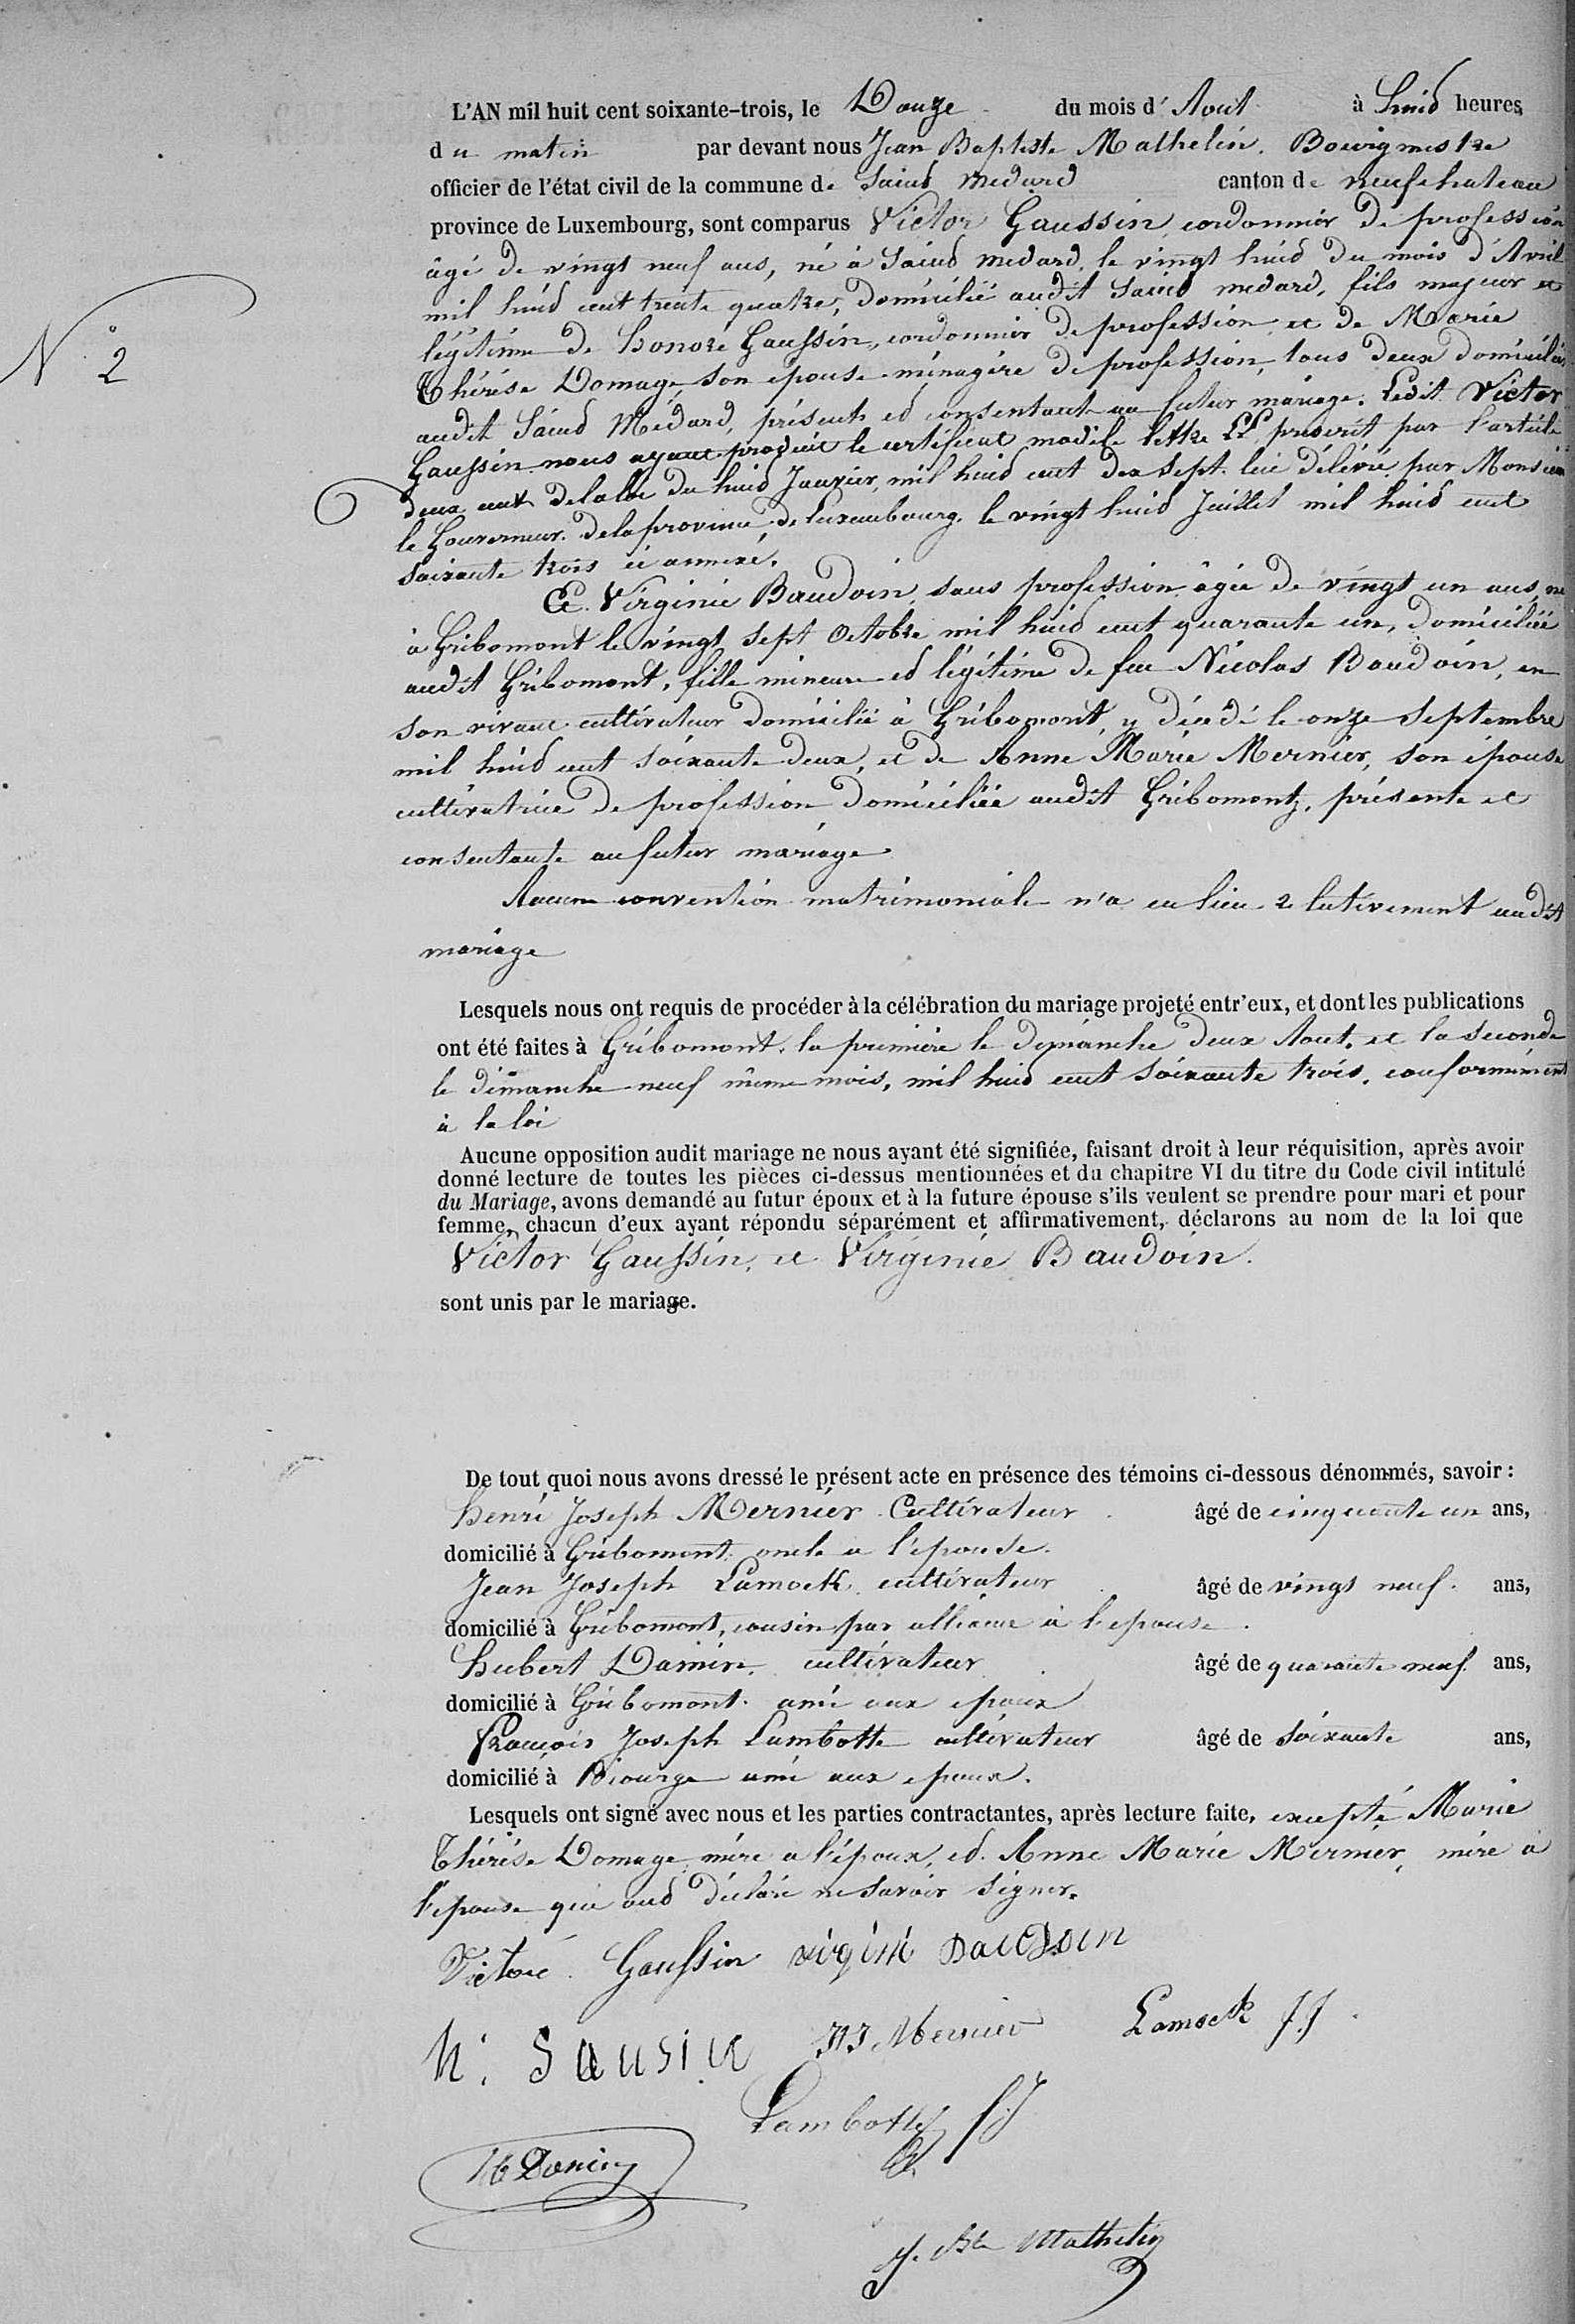 L'AN mil huit cent soixante-trois, le Douze du mois d' Aout à huid heures
du matin par devant nous Jean Baptiste Mathelin, Bourgmestre
officier de l'état civil de la commune de Saind Medard canton de neufchateau
province de Luxembourg, sont comparus Victor Gaussin cordonnier de profession
âgé de vingt neuf ans, né à Saind Medard, le vingt huid du mois d'Avril
mil huid cent trente quatre, domicilié audit Saind medard, fils majeur et
N° 2
légitime de honoré Gaussin, cordonnier de profession et de Marie
Thérèse Domage, son épouse ménagère de profession, tous deux domiciliés
audit Saind Médard, présents ed consentant au futur mariage. Ledit Victor
Gaussin nous ayant produit le certificat modèle lettre LL prescrit par l'article
deux cent de la loi du huid Janvier, mil huid cent dix sept. lui délivré par Monsieur
le Gouverneur de la province de Luxembourg, le vingt huid Juillet mil huid cent
soixante trois ci annexé.
Et Virginie Baudoin, sans profession âgée de vingt un ans, né
à Gribomont le vingt sept Octobre mil huid cent quarante un, domiciliée
audit Gribomont, fille mineure ed légitime de feu Nicolas Baudoin, en
son vivant cultivateur domicilié à Gribomont, y décédé le onze Septembre
mil huid cent soixante deux, et de Anne Marie Mernier, son épouse
cultivatrice de profession domiciliée audit Gribomont, présente et
consentante au futur mariage
Aucune convention matrimoniale n'a eu lieu relativement audit
mariage
Lesquels nous ont requis de procéder à la célébration du mariage projeté entr'eux, et dont les publications
ont été faites à Gribomont, la première le dimanche deux Aout, et la seconde
le dimanche neuf même mois, mil huid cent soixante trois, conformément
à la loi
Aucune opposition audit mariage ne nous ayant été signifiée, faisant droit à leur réquisition, après avoir
donné lecture de toutes les pièces ci-dessus mentionnées et du chapitre VI du titre du Code civil intitulé
du Mariage, avons demandé au futur époux et à la future épouse s'ils veulent se prendre pour mari et pour
femme, chacun d'eux ayant répondu séparément et affirmativement, déclarons au nom de la loi que
Victor Gaussin, et Virginie Baudoin.
sont unis par le mariage.
De tout quoi nous avons dressé le présent acte en présence des témoins ci-dessous dénommés, savoir :
henri Joseph Mernier Cultivateur âgé de cinquante un ans,
domicilié à Gribomont oncle a l'epouse.
Jean Joseph Lamock cultivateur âgé de vingt neuf ans,
domicilié à Gribomont, cousin par alliance à l'epouse.
hubert Damin, cultivateur âgé de quarante neuf ans,
domicilié à Gribomont. ami aux epoux
François Joseph Lambotte cultivateur âgé de soixante ans,
domicilié à Biourge ami aux epoux.
Lesquels ont signé avec nous et les parties contractantes, après lecture faite, excepté Marie
Thérèse Domage mère a l'époux, ed. Anne Marie Mernier, mère à
l'epouse qui ond déclaré ne savoir signer.
Victore Gaussin virgini Baudoin
h. Sausin HJ Mernier Lamock J.J
Lambotte f.J
H Damin
J. Bte Mathelin